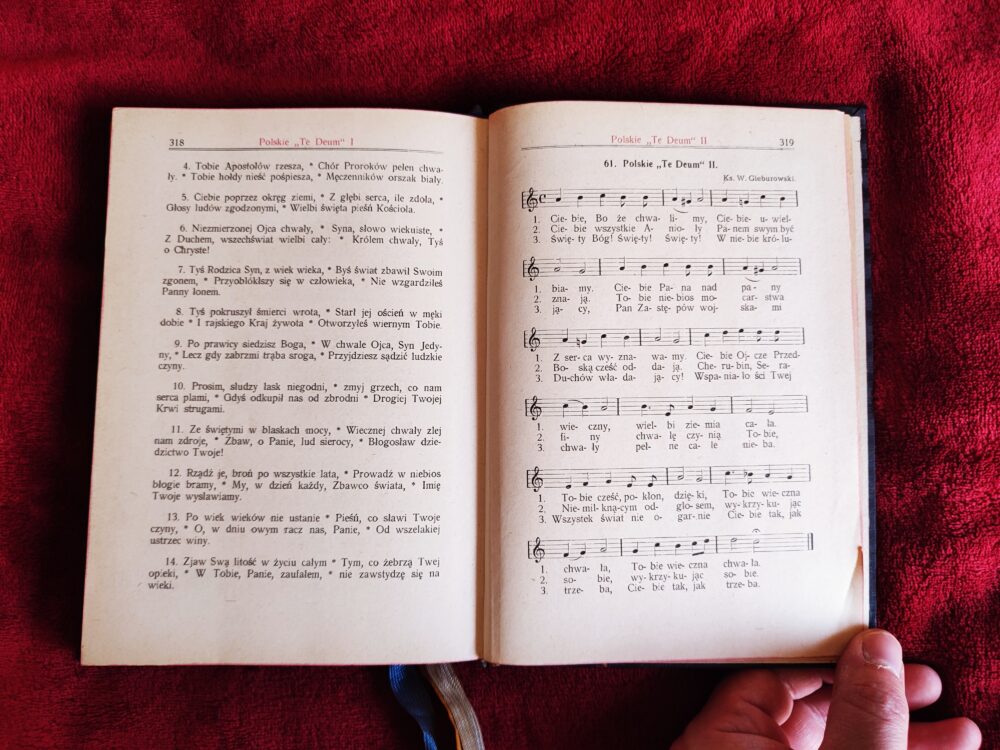 318 Polskie „Te Deum“ I
4. Tobie Apostołów rzesza, * Chór Proroków pełen chwa-
ły. * Tobie hołdy nieść pośpiesza, * Męczenników orszak biały.
5. Ciebie poprzez okręg ziemi, * Z głębi serca, ile zdoła, *
Głosy ludów zgodzonymi, * Wielbi święta pieśń Kościoła.
6. Niezmierzonej Ojca chwały, * Syna, słowo wiekuiste, *
Z Duchem, wszechświat wielbi cały: * Królem chwały, Tyś
o Chryste!
7. Tyś Rodzica Syn, z wiek wieka, * Byś świat zbawił Swoim
zgonem, * Przyoblókłszy się w człowieka, * Nie wzgardziłeś
Panny łonem.
8. Tyś pokruszył śmierci wrota, * Starł jej oścień w męki
dobie * I rajskiego Kraj żywota * Otworzyłeś wiernym Tobie.
9. Po prawicy siedzisz Boga, * W chwale Ojca, Syn Jedy-
ny, * Lecz gdy zabrzmi trąba sroga, * Przyjdziesz sądzić ludzkie
czyny.
10. Prosim, słudzy łask niegodni, * zmyj grzech, co nam
serca plami, * Gdyś odkupił nas od zbrodni * Drogiej Twojej
Krwi strugami.
11. Ze świętymi w blaskach mocy, * Wiecznej chwały zlej
nam zdroje, * Zbaw, o Panie, lud sierocy, * Błogosław dzie-
dzictwo Twoje!
12. Rządź je, broń po wszystkie lata, * Prowadź w niebios
błogie bramy, * My, w dzień każdy, Zbawco świata, * Imię
Twoje wysławiamy.
13. Po wiek wieków nie ustanie * Pieśń, co sławi Twoje
czyny, * O, w dniu owym racz nas, Panie, * Od wszelakiej
ustrzec winy.
14. Zjaw Swą litość w życiu całym * Tym, co żebrzą Twej
opieki, * W Tobie, Panie, zaufałem, * nie zawstydzę się na
wieki.
Polskie „Te Deum“ II 319
61. Polskie „Te Deum“ II.
Ks. W. Gieburowski.
1. Cie- bie, Bo że chwa- li- my, Cie- bie- u- wiel-
2. Cie- bie wszystkie A- nio- ły Pa- nem swym być
3. Świę- ty Bóg! Świę- ty! Świę- ty! W nie- bie kró- lu-
1. bia- my. Cie- bie Pa- na nad pa- ny
2. zna- ją. To- bie nie- bios mo- car- stwa
3. ją- cy, Pan Za- stę- pów woj- ska- mi
1. Z ser- ca wy- zna- wa- my. Cie- bie Oj- cze Przed-
2. Bo- ską cześć od- da- ją. Che- ru- bin, Se- ra-
3. Du- chów wła- da- ją- cy! Wspa- nia- ło ści Twej
1. wie- czny, wiel- bi zie- mia ca- ła.
2. fi- ny chwa- łę czy- nią To- bie,
3. chwa- ły peł- ne ca- łe nie- ba.
1. To- bie cześć, po- kłon, dzię- ki, To- bie wie- czna
2. Nie- mil- kną- cym od- gło- sem, wy- krzy- ku- jąc
3. Wszystek świat nie o- gar- nie Cie- bie tak, jak
1. chwa- ła, To- bie wie- czna chwa- ła.
2. so- bie, wy- krzy- ku- jąc so- bie.
3. trze- ba, Cie- bie tak, jak trze- ba.